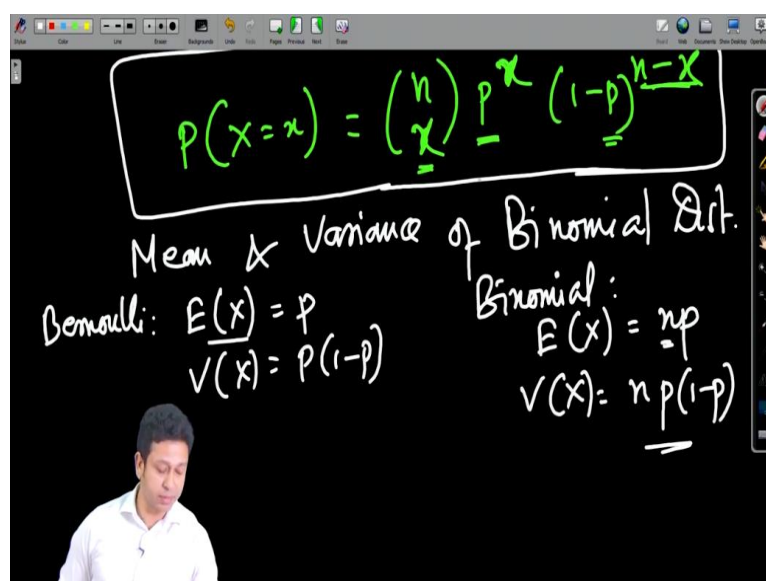 Style Color Line Eraser Backgrounds Undo Redo Pages Previous Next Erase Board Web Documents Show Desktop
P(X=x) = (n x) p^x (1-p)^{n-x}
Mean & Variance of Binomial Dist.
Bernoulli: E(X) = p
V(X) = p(1-p)
Binomial:
E(X) = np
V(X) = n p(1-p)